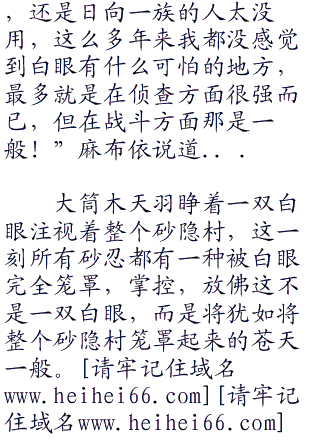 ，还是日向一族的人太没
用，这么多年来我都没感觉
到白眼有什么可怕的地方，
最多就是在侦查方面很强而
已，但在战斗方面那是一
般！”麻布依说道．．．
大筒木天羽睁着一双白
眼注视着整个砂隐村，这一
刻所有砂忍都有一种被白眼
完全笼罩，掌控，放佛这不
是一双白眼，而是将犹如将
整个砂隐村笼罩起来的苍天
一般。[请牢记住域名
www.heihei66.com][请牢记
住域名www.heihei66.com]